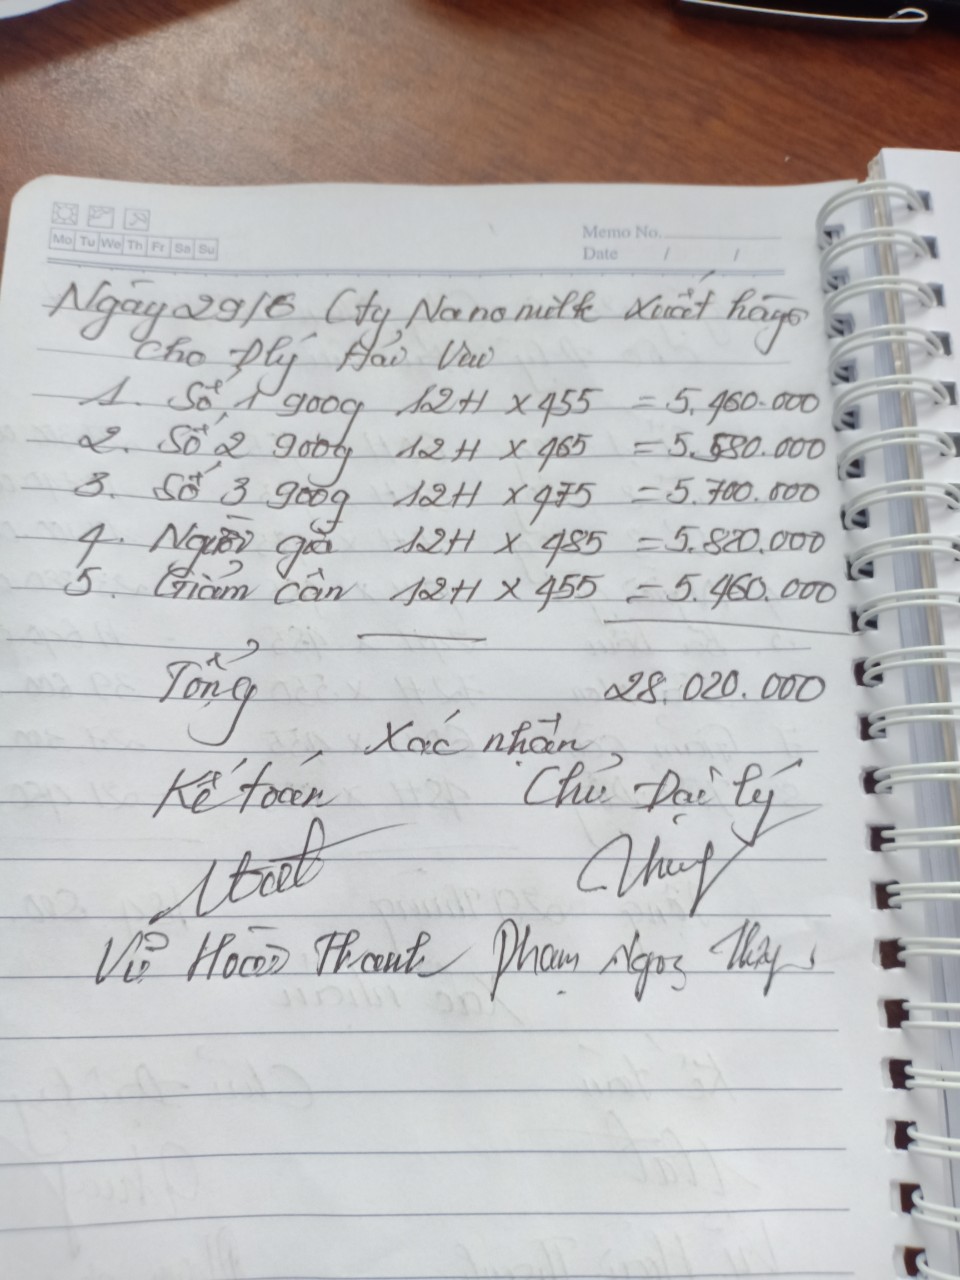 Mo Tu We Th Fr Sa Su
Memo No.
Date / /
Ngày 29/6 Cty Nanomilk xuất hàng
cho Đlý Hải Vui
1. Số 1 900g 12H x 455 = 5.460.000
2. Số 2 900g 12H x 465 = 5.580.000
3. Số 3 900g 12H x 475 = 5.700.000
4. Người già 12H x 485 = 5.820.000
5. Giảm cân 12H x 455 = 5.460.000
Tổng 28.020.000
Xác nhận
Kế toán Chủ Đại lý
Vũ Hoài Thanh Phạm Ngọc Thúy